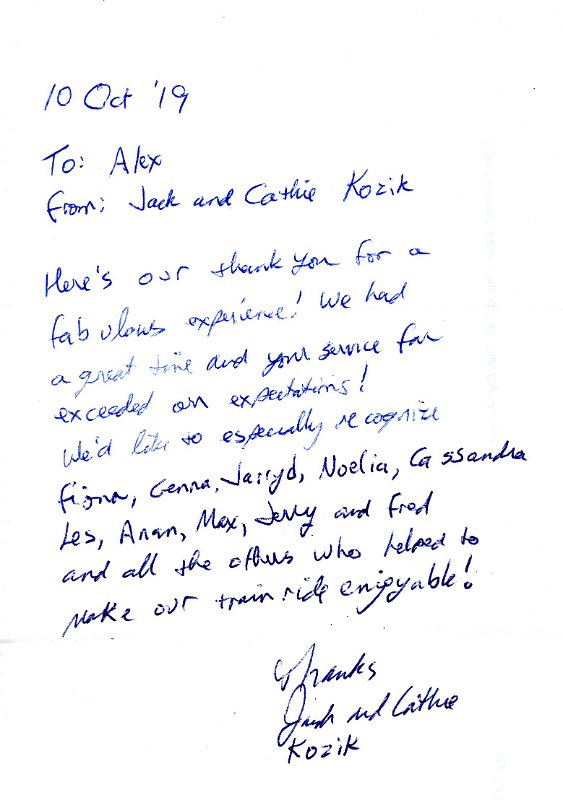 10 Oct '19
To: Alex
From: Jack and Cathie Kozik
Here's our thank you for a
fabulous experience! We had
a great time and your service far
exceeded our expectations!
We'd like to especially recognize
Fiona, Genna, Jarryd, Noelia, Cassandra
Les, Anan, Max, Jerry and Fred
and all the others who helped to
make our train ride enjoyable!
Thanks
Jack and Cathie
Kozik